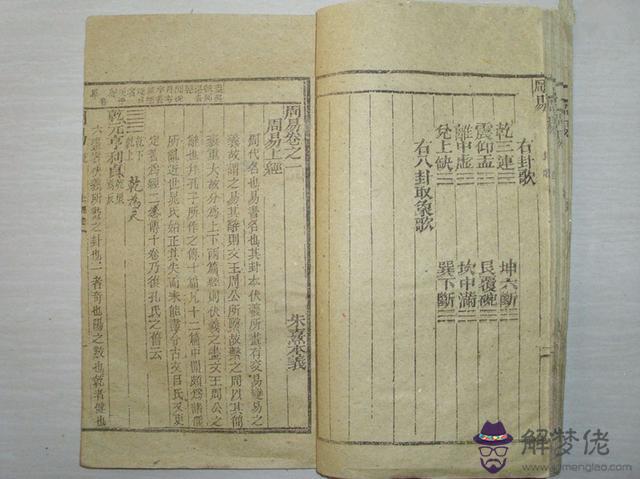 周易
右卦歌
乾三連☰ 坤六斷☷
震仰盂☳ 艮覆碗☶
離中虛☲ 坎中滿☵
兌上缺☱ 巽下斷☴
右八卦取象歌
周易卷之一
朱熹本義
周易上經
周代名也易書名也其卦本伏羲所畫有交易變易之
義故謂之易其辭則文王周公所繫故繫之周以其簡
袠重大故分為上下兩篇經則伏羲之畫文王周公之
辭也并孔子所作之傳十篇凡十二篇中間頗為諸儒
所亂近世晁氏始正其失而未能盡合古文呂氏又更
定著為經二卷傳十卷乃復孔氏之舊云
乾下
乾上
乾為天
乾元亨利貞
六畫者伏羲所畫之卦也一者奇也陽之數也乾者健也
解梦佬
jiemenglao.com